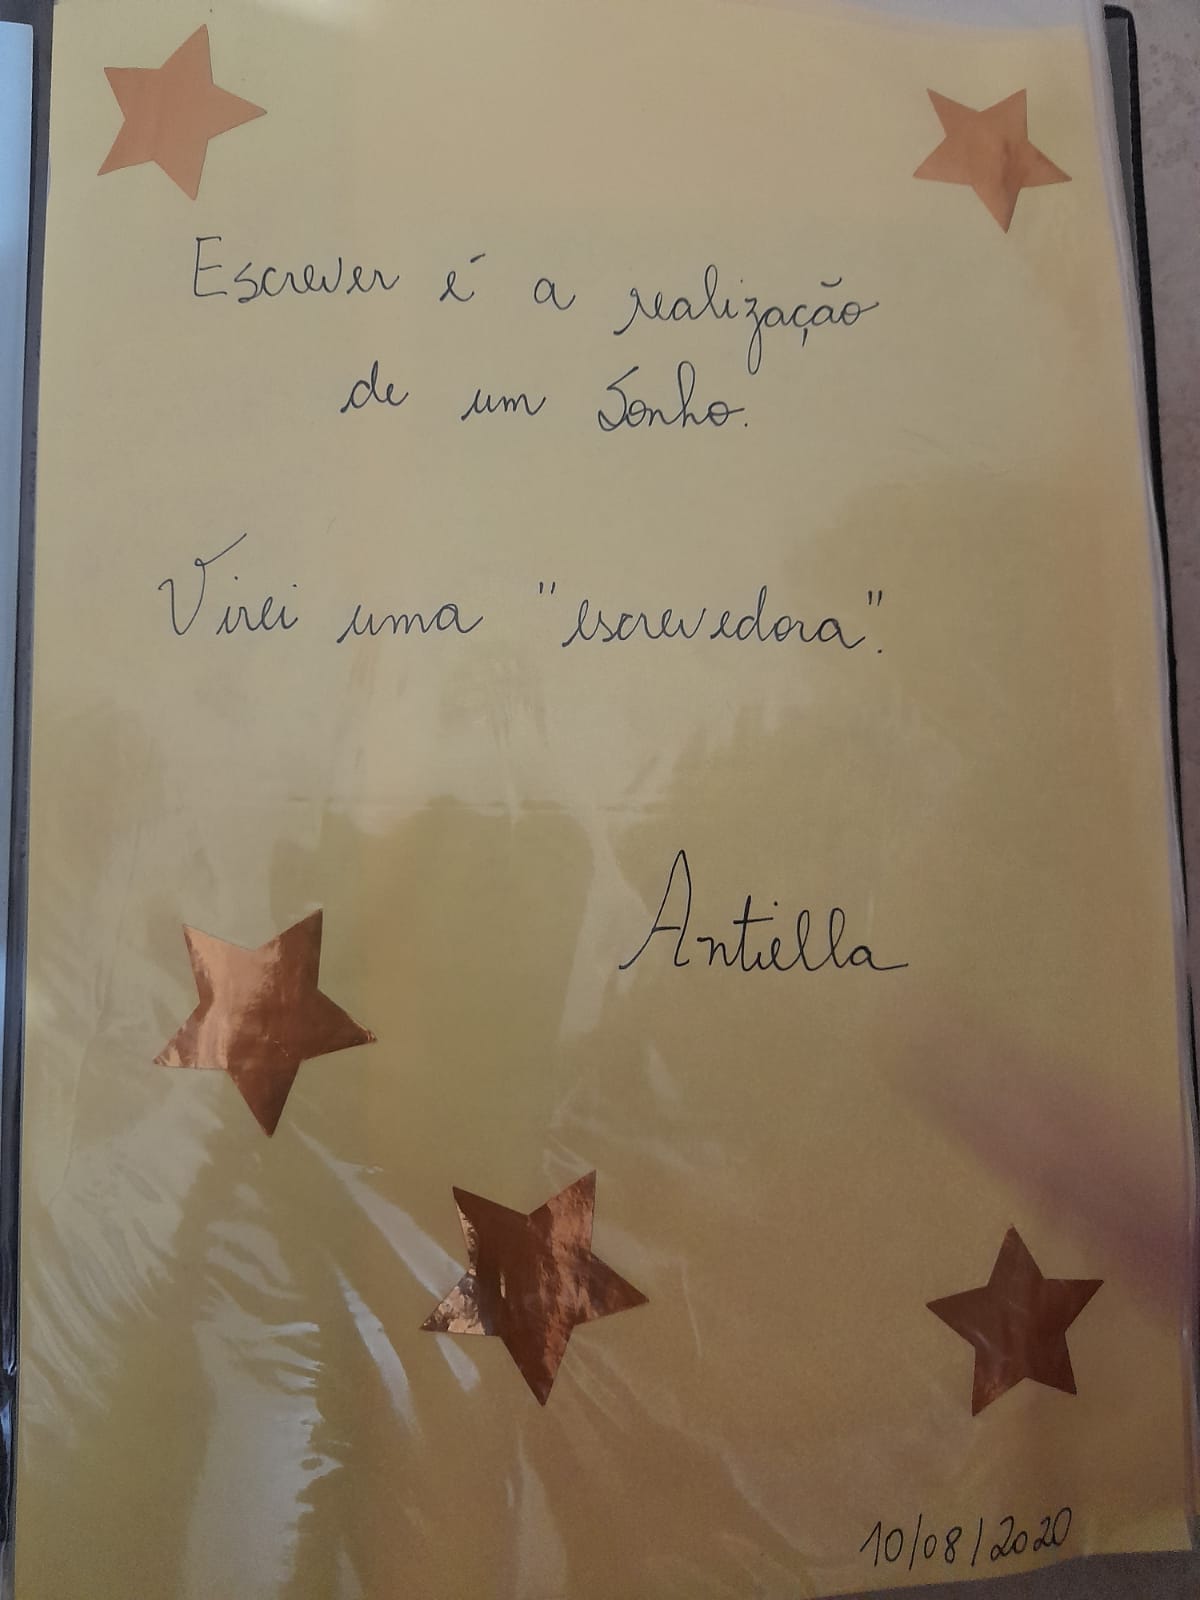 Escrever é a realização
de um Sonho.
Virei uma "escrevedora".
Antiella
10/08/2020